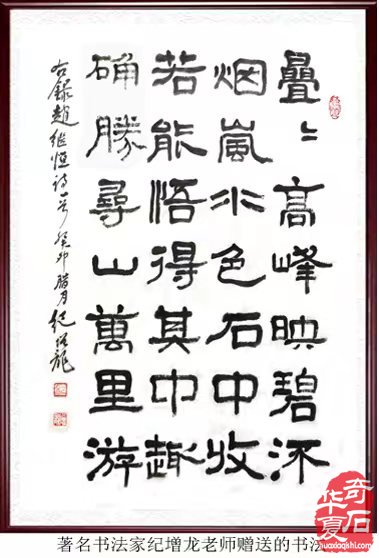 疊〻高峰映碧流
烟嵐水色石中收
若能悟得其中趣
确勝尋山萬里游
右錄趙繼恒詩一首 癸卯腊月 紀增龍
著名书法家纪增龙老师赠送的书法
华夏奇石